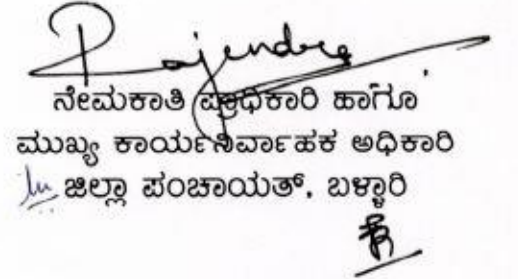 Rajendra
ನೇಮಕಾತಿ ಪ್ರಾಧಿಕಾರಿ ಹಾಗೂ
ಮುಖ್ಯ ಕಾರ್ಯನಿರ್ವಾಹಕ ಅಧಿಕಾರಿ
ಜಿಲ್ಲಾ ಪಂಚಾಯತ್, ಬಳ್ಳಾರಿ